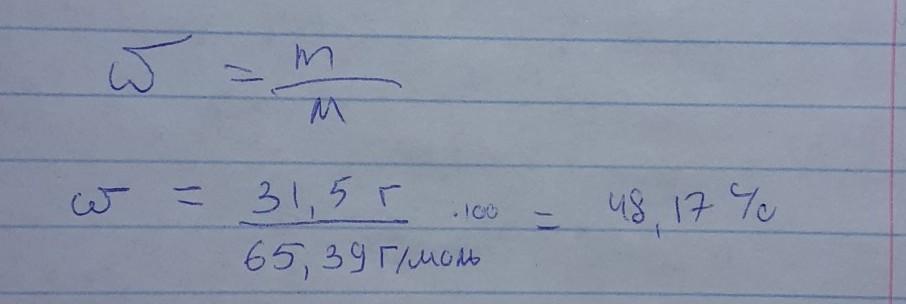 ω = m / м
ω = 31,5 г / 65,39 г/моль · 100 = 48,17 %